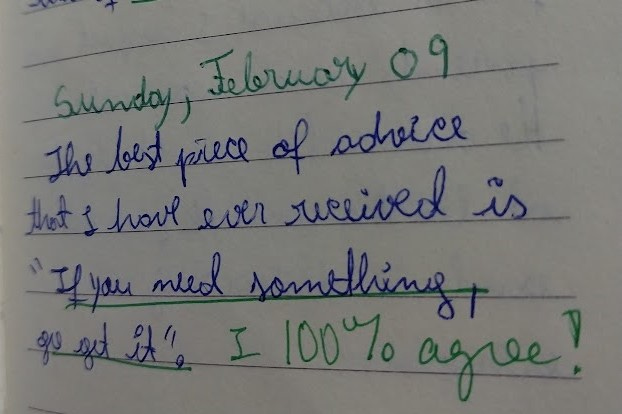 Sunday, February 09
The best piece of advice
that I have ever received is
"If you need something,
go get it". I 100% agree!